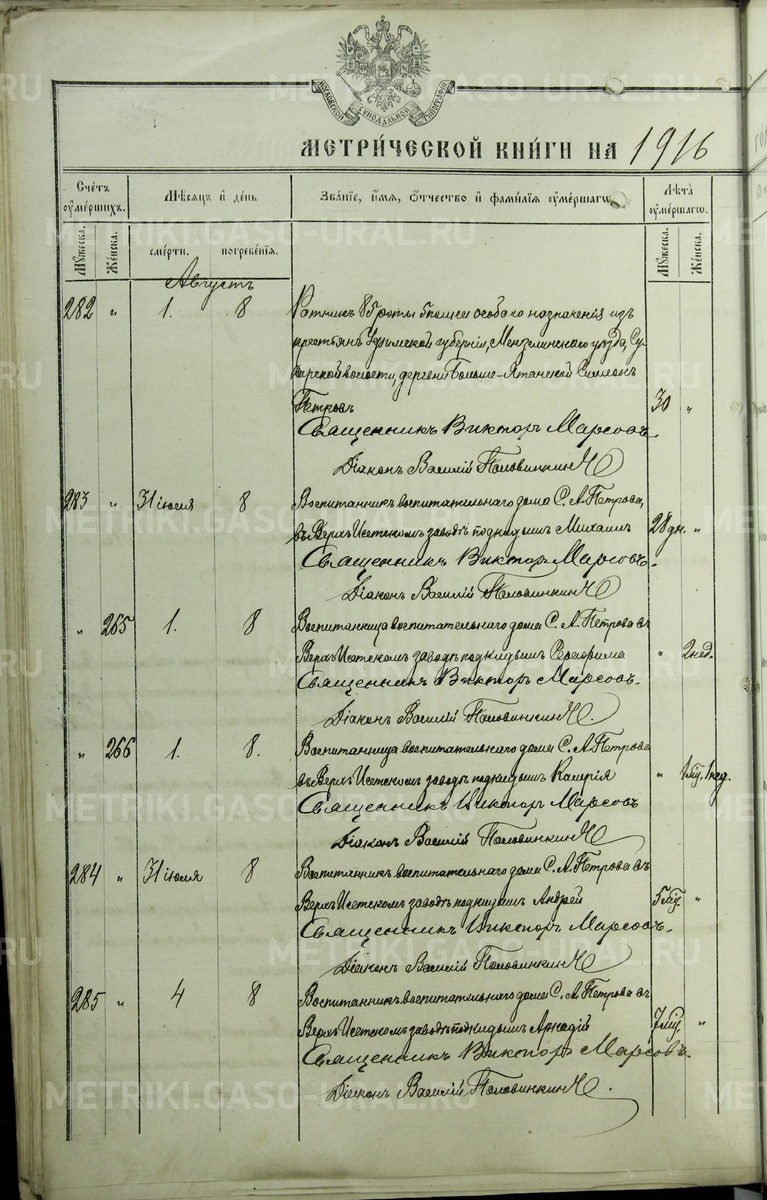 МОСКОВСКОЙ СѴНОДАЛЬНОЙ ТИПОГРАФІИ
МЕТРИ́ЧЕСКОЙ КНИ́ГИ НА 1916
Сче́тъ ᲂу҆ме́ршихъ. Мѣ́сѧцъ и҆ де́нь Зва́нїе, и҆́мѧ, ѻ҆́тчество и҆ фамі́лїа ᲂу҆ме́ршагѡ. Лѣ́та ᲂу҆ме́ршагѡ.
Мꙋ́жеска. Же́нска. сме́рти. погребе́нїѧ. Мꙋ́жеска. Же́нска.
Августъ
282 " 1. 8 Ратникъ 85 роты 6 полка особаго назначенія изъ
крестьянъ Уфимской губерніи, Мензелинскаго уѣзда, Су-
карской волости, деревни Больше-Ятанской Симеонъ
Петровъ 30 "
Священникъ Викторъ Марсовъ.
Діаконъ Василій Половинкинъ
283 " 31 іюля 8 Воспитанникъ воспитательнаго дома С. А. Петрова,
въ Верхъ Исетскомъ заводѣ подкидышъ Михаилъ 28 дн. "
Священникъ Викторъ Марсовъ.
Діаконъ Василій Половинкинъ
" 265 1. 8 Воспитанница воспитательнаго дома С. А. Петрова въ
Верхъ Исетскомъ заводѣ подкидышъ Серафима " 2 нед.
Священникъ Викторъ Марсовъ.
Діаконъ Василій Половинкинъ.
" 266 1. 8. Воспитанница воспитательнаго дома С. А. Петрова
въ Верхъ Исетскомъ заводѣ подкидышъ Валерія " 1 мѣс. 1 нед.
Священникъ Викторъ Марсовъ
Діаконъ Василій Половинкинъ
284 " 31 іюля 8 Воспитанникъ воспитательнаго дома С. А. Петрова въ
Верхъ Исетскомъ заводѣ подкидышъ Андрей 5 мѣс. "
Священникъ Викторъ Марсовъ.
Діаконъ Василій Половинкинъ
285 " 4 8 Воспитанникъ воспитательнаго дома С. А. Петрова въ
Верхъ Исетскомъ заводѣ подкидышъ Аркадій 7 мѣс. "
Священникъ Викторъ Марсовъ.
Діаконъ Василій Половинкинъ.
METRIKI.GASO-URAL.RU